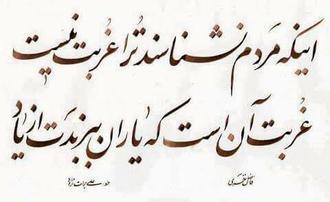 اینکه مردم نشناسند تو را غربت نیست
غربت آن است که یاران ببرندت از یاد
فاضل نظری